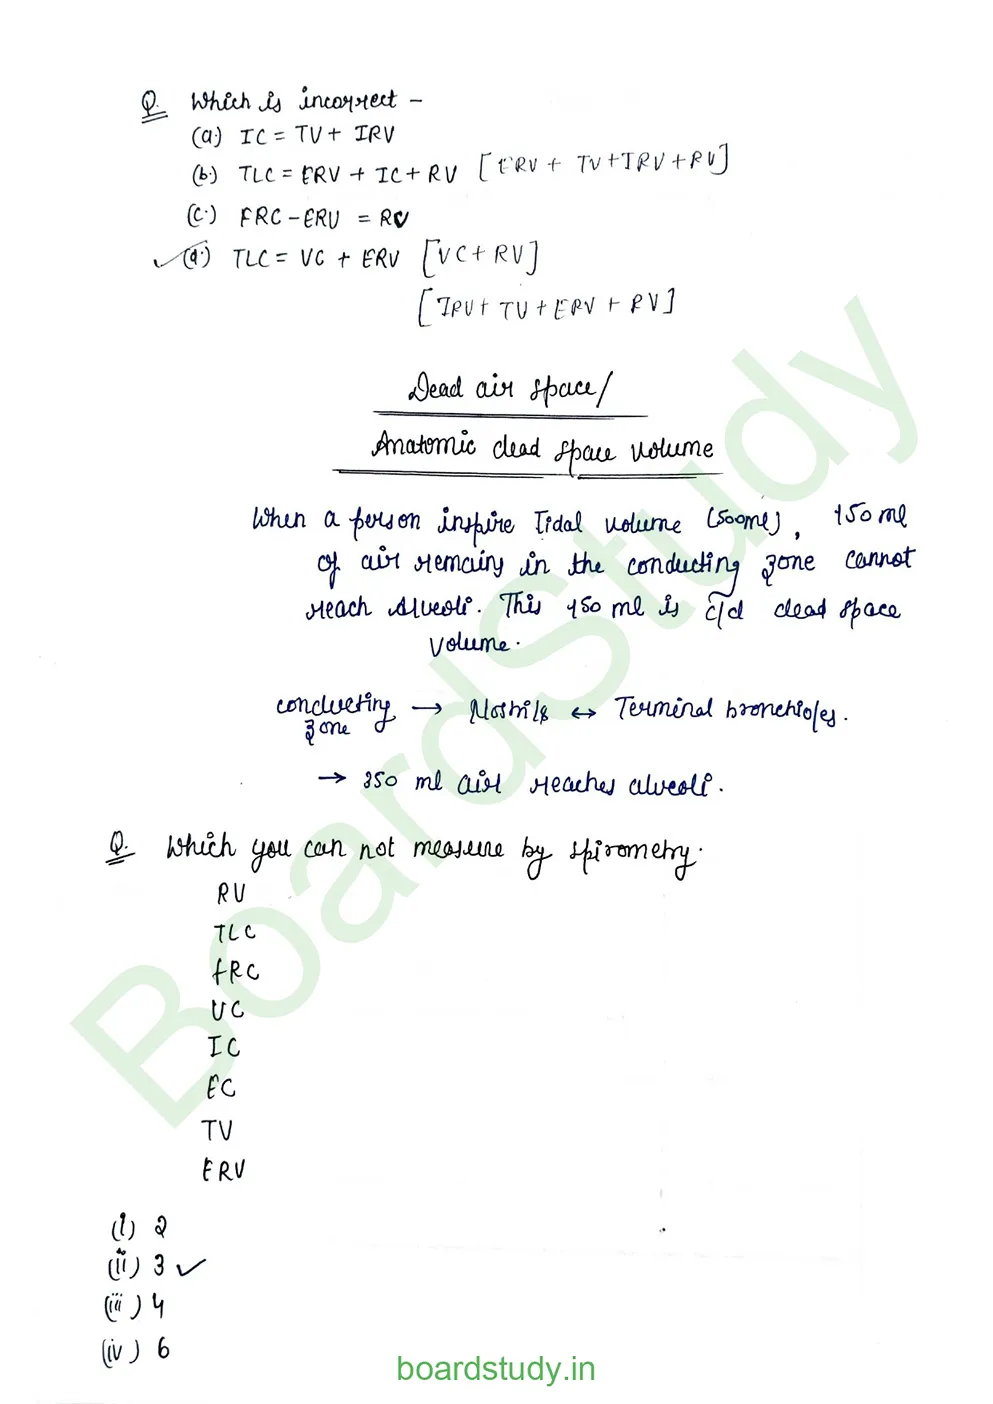 Q. Which is incorrect -
(a.) IC = TV + IRV
(b.) TLC = ERV + IC + RV [ERV + TV + IRV + RV]
(c.) FRC - ERV = RV
(d.) TLC = VC + ERV [VC + RV]
[IRV + TV + ERV + RV]
Dead air space/
Anatomic dead space volume
When a person inspire Tidal volume (500ml), 150 ml
of air remains in the conducting zone cannot
reach Alveoli. This 150 ml is c/d dead space
volume.
conducting zone → Nostrils ↔ Terminal bronchioles.
→ 350 ml air reaches alveoli.
Q. Which you can not measure by spirometry.
RV
TLC
FRC
VC
IC
EC
TV
ERV
(i) 2
(ii) 3 ✓
(iii) 4
(iv) 6
BoardStudy
boardstudy.in